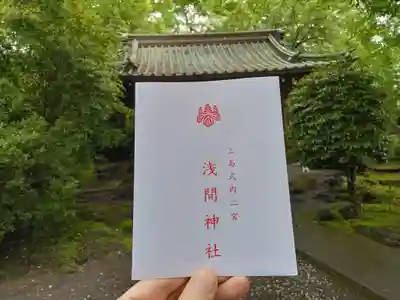 三島之内二宮
浅間神社